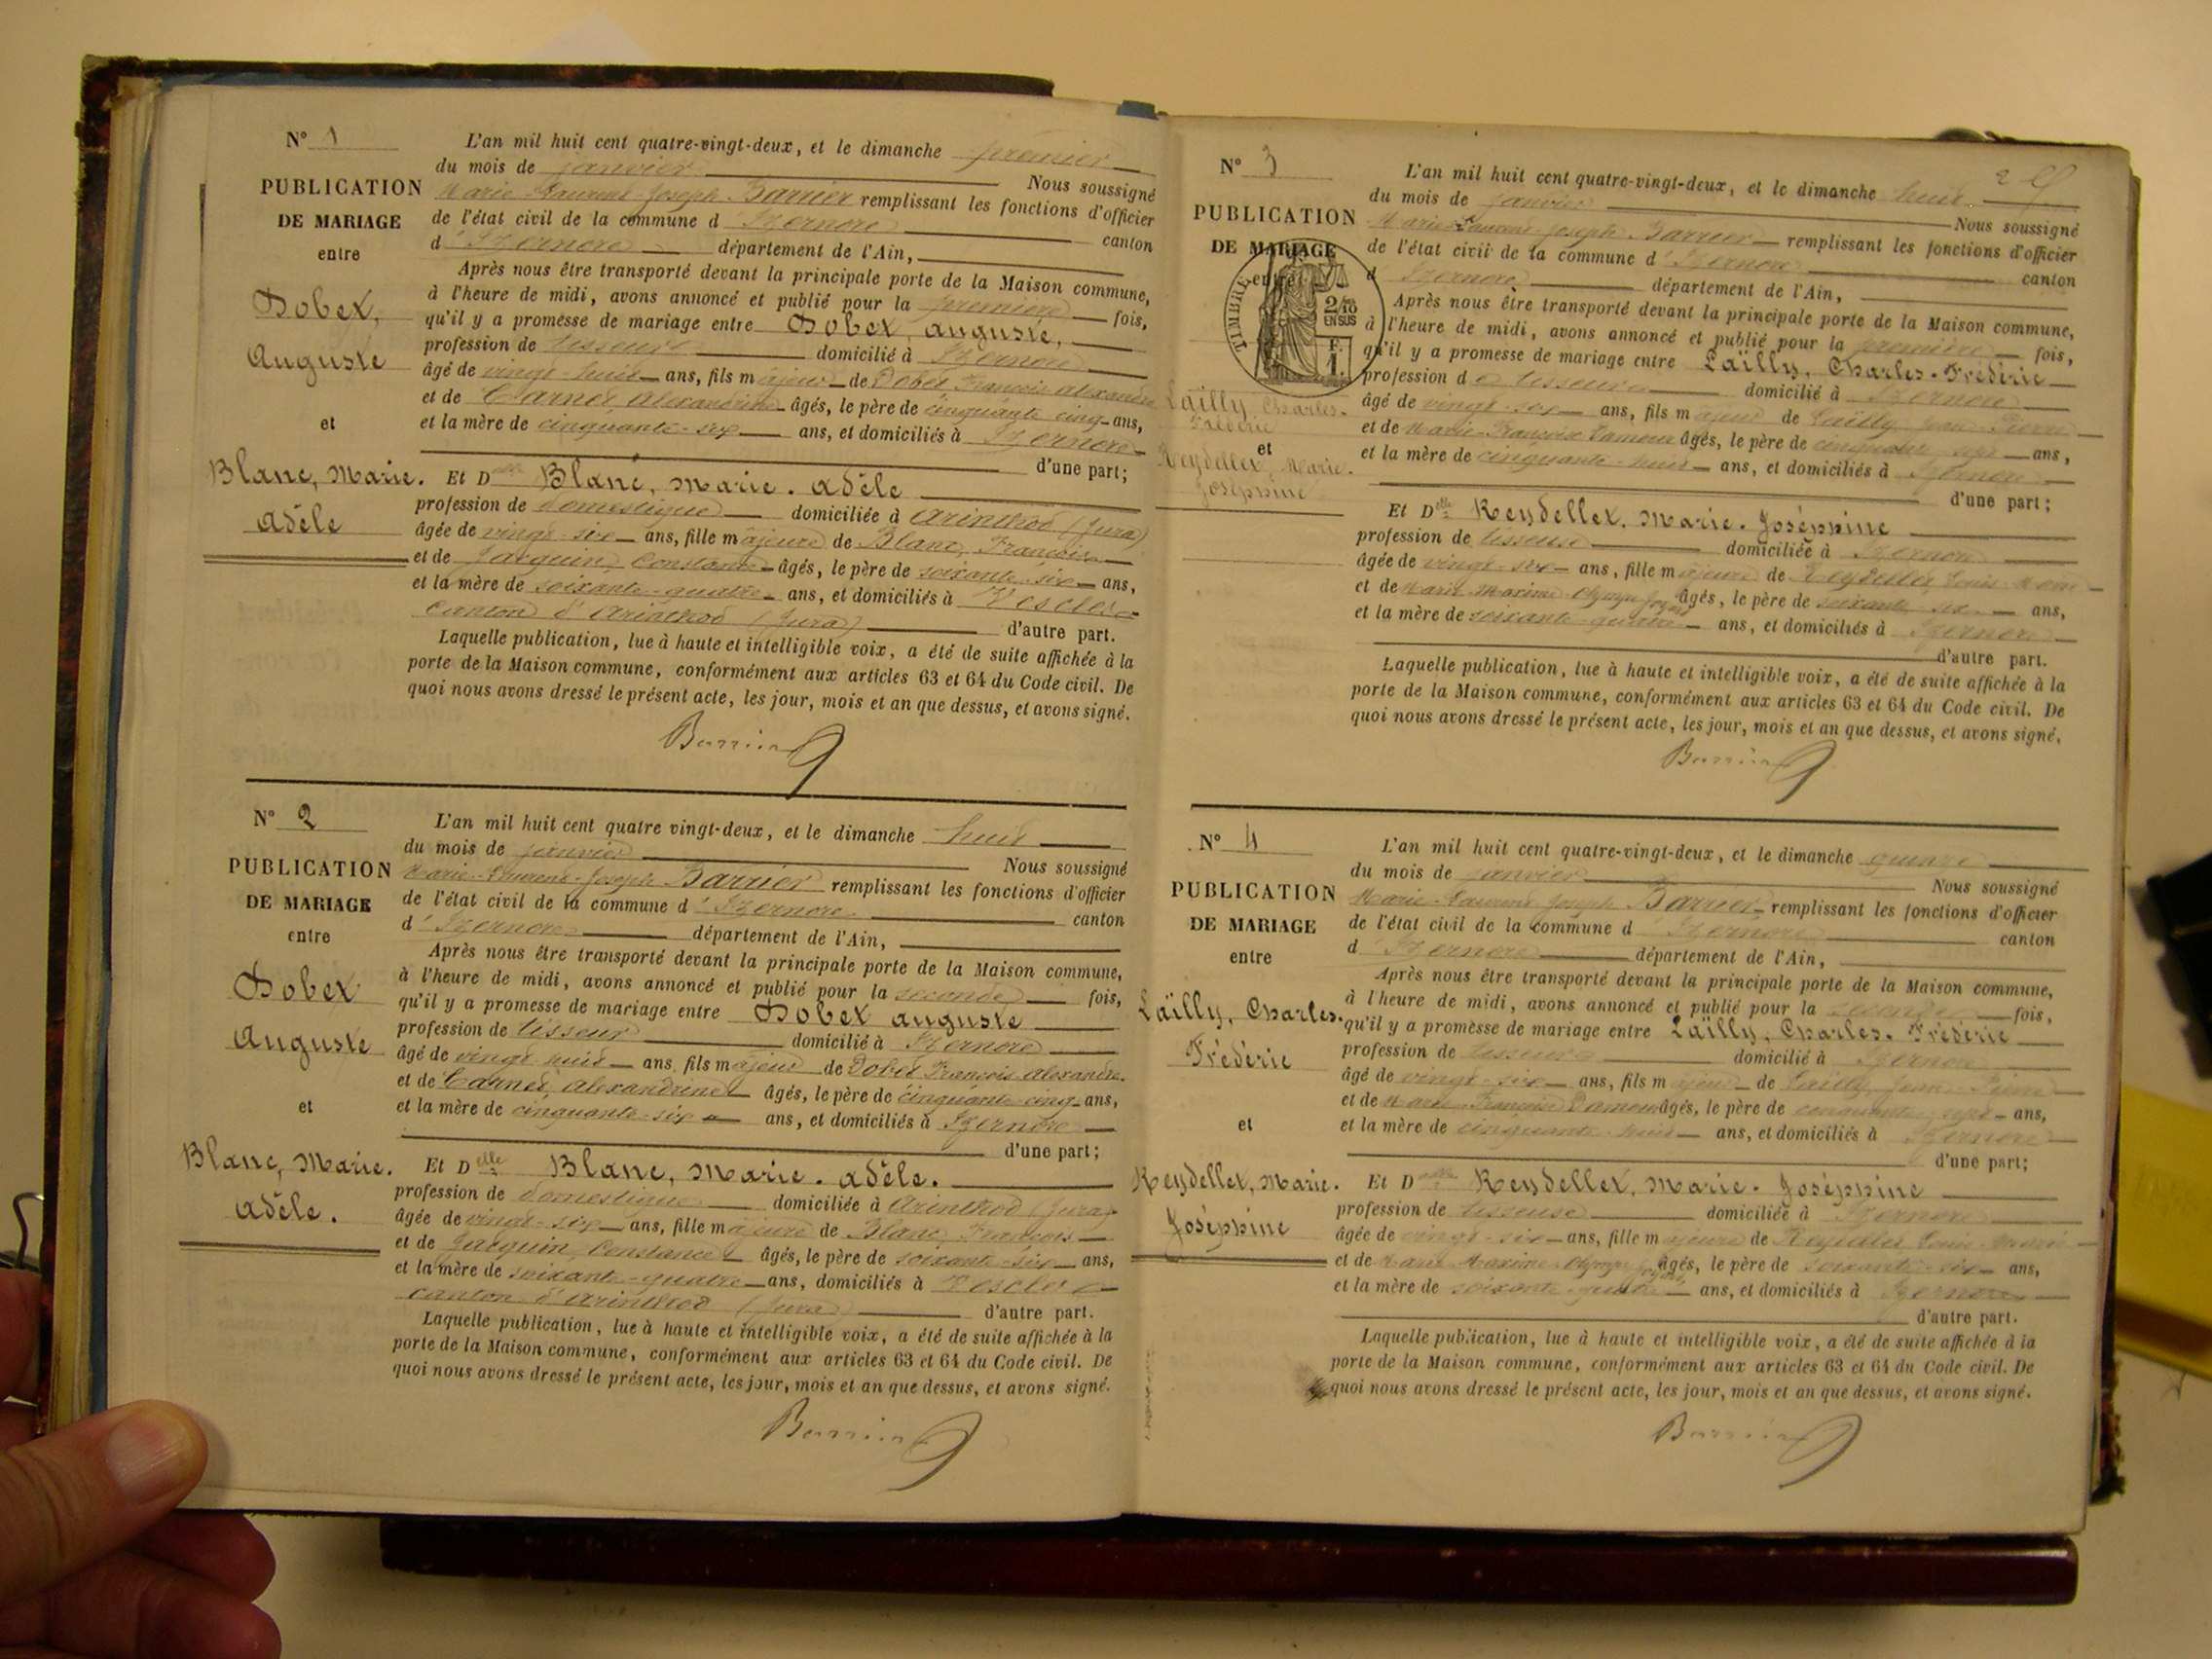 N° 1
PUBLICATION
DE MARIAGE
entre
Dobet,
Auguste
et
Blanc, Marie.
Adèle
L'an mil huit cent quatre-vingt-deux, et le dimanche premier
du mois de janvier Nous soussigné
Marie-Laurent-Joseph Barrier remplissant les fonctions d'officier
de l'état civil de la commune d'Izernore canton
d'Izernore département de l'Ain,
Après nous être transporté devant la principale porte de la Maison commune,
à l'heure de midi, avons annoncé et publié pour la première fois,
qu'il y a promesse de mariage entre Dobet, Auguste,
profession de tisseur domicilié à Izernore
âgé de vingt-huit ans, fils majeur de Dobet François Alexandre
et de Carnet, Alexandrine âgés, le père de cinquante cinq ans,
et la mère de cinquante-six ans, et domiciliés à Izernore
d'une part;
Et Delle Blanc, Marie. Adèle
profession de domestique domiciliée à Arinthod (Jura)
âgée de vingt-six ans, fille majeure de Blanc, François
et de Jacquin, Constance âgés, le père de soixante-six ans,
et la mère de soixante-quatre ans, et domiciliés à Vescles
canton d'Arinthod (Jura) d'autre part.
Laquelle publication, lue à haute et intelligible voix, a été de suite affichée à la
porte de la Maison commune, conformément aux articles 63 et 64 du Code civil. De
quoi nous avons dressé le présent acte, les jour, mois et an que dessus, et avons signé.
Barrier
N° 2
PUBLICATION
DE MARIAGE
entre
Dobet
Auguste
et
Blanc, Marie.
Adèle.
L'an mil huit cent quatre vingt-deux, et le dimanche huit
du mois de janvier Nous soussigné
Marie-Laurent-Joseph Barrier remplissant les fonctions d'officier
de l'état civil de la commune d'Izernore canton
d'Izernore département de l'Ain,
Après nous être transporté devant la principale porte de la Maison commune,
à l'heure de midi, avons annoncé et publié pour la seconde fois,
qu'il y a promesse de mariage entre Dobet Auguste
profession de tisseur domicilié à Izernore
âgé de vingt-huit ans, fils majeur de Dobet François Alexandre
et de Carnet, Alexandrine âgés, le père de cinquante-cinq ans,
et la mère de cinquante-six ans, et domiciliés à Izernore
d'une part;
Et Delle Blanc, Marie. Adèle.
profession de domestique domiciliée à Arinthod (Jura)
âgée de vingt-six ans, fille majeure de Blanc, François
et de Jacquin, Constance âgés, le père de soixante-six ans,
et la mère de soixante-quatre ans, domiciliés à Vescles
canton d'Arinthod (Jura) d'autre part.
Laquelle publication, lue à haute et intelligible voix, a été de suite affichée à la
porte de la Maison commune, conformément aux articles 63 et 64 du Code civil. De
quoi nous avons dressé le présent acte, les jour, mois et an que dessus, et avons signé.
Barrier
N° 3
PUBLICATION
DE MARIAGE
entre
TIMBRE
2/10
EN SUS
F.
1.
Laïlly, Charles-
Fréderic
et
Reydellet, Marie.
Joséphine
L'an mil huit cent quatre-vingt-deux, et le dimanche huit
du mois de janvier Nous soussigné
Marie-Laurent Joseph Barrier remplissant les fonctions d'officier
de l'état civil de la commune d'Izernore canton
d'Izernore département de l'Ain,
Après nous être transporté devant la principale porte de la Maison commune,
à l'heure de midi, avons annoncé et publié pour la première fois,
qu'il y a promesse de mariage entre Laïlly, Charles-Fréderic
profession de tisseur domicilié à Izernore
âgé de vingt-six ans, fils majeur de Laïlly Jean Pierre
et de Marie-Françoise âgés, le père de cinquante sept ans,
et la mère de cinquante-huit ans, et domiciliés à Izernore
d'une part;
Et Delle Reydellet, Marie. Joséphine
profession de tisseuse domiciliée à Izernore
âgée de vingt-six ans, fille majeure de Reydellet Louis
et de Marie Maxime Olympe âgés, le père de soixante six ans,
et la mère de soixante-quatre ans, et domiciliés à Izernore
d'autre part.
Laquelle publication, lue à haute et intelligible voix, a été de suite affichée à la
porte de la Maison commune, conformément aux articles 63 et 64 du Code civil. De
quoi nous avons dressé le présent acte, les jour, mois et an que dessus, et avons signé.
Barrier
N° 4
PUBLICATION
DE MARIAGE
entre
Laïlly, Charles.
Fréderic
et
Reydellet, Marie.
Joséphine
L'an mil huit cent quatre-vingt-deux, et le dimanche quinze
du mois de janvier Nous soussigné
Marie-Laurent Joseph Barrier remplissant les fonctions d'officier
de l'état civil de la commune d'Izernore canton
d'Izernore département de l'Ain,
Après nous être transporté devant la principale porte de la Maison commune,
à l'heure de midi, avons annoncé et publié pour la seconde fois,
qu'il y a promesse de mariage entre Laïlly, Charles. Fréderic
profession de tisseur domicilié à Izernore
âgé de vingt-six ans, fils majeur de Laïlly, Jean-Pierre
et de Marie Françoise âgés, le père de cinquante sept ans,
et la mère de cinquante-huit ans, et domiciliés à Izernore
d'une part;
Et Delle Reydellet, Marie. Joséphine
profession de tisseuse domiciliée à Izernore
âgée de vingt-six ans, fille majeure de Reydellet Louis
et de Marie Maxime Olympe âgés, le père de soixante-six ans,
et la mère de soixante-quatre ans, et domiciliés à Izernore
d'autre part.
Laquelle publication, lue à haute et intelligible voix, a été de suite affichée à la
porte de la Maison commune, conformément aux articles 63 et 64 du Code civil. De
quoi nous avons dressé le présent acte, les jour, mois et an que dessus, et avons signé.
Barrier